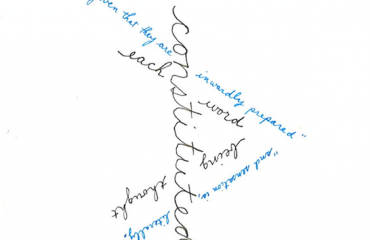 given that they are
each
constituted
inwardly prepared"
word
being
"and sensation is,
thought
literally,